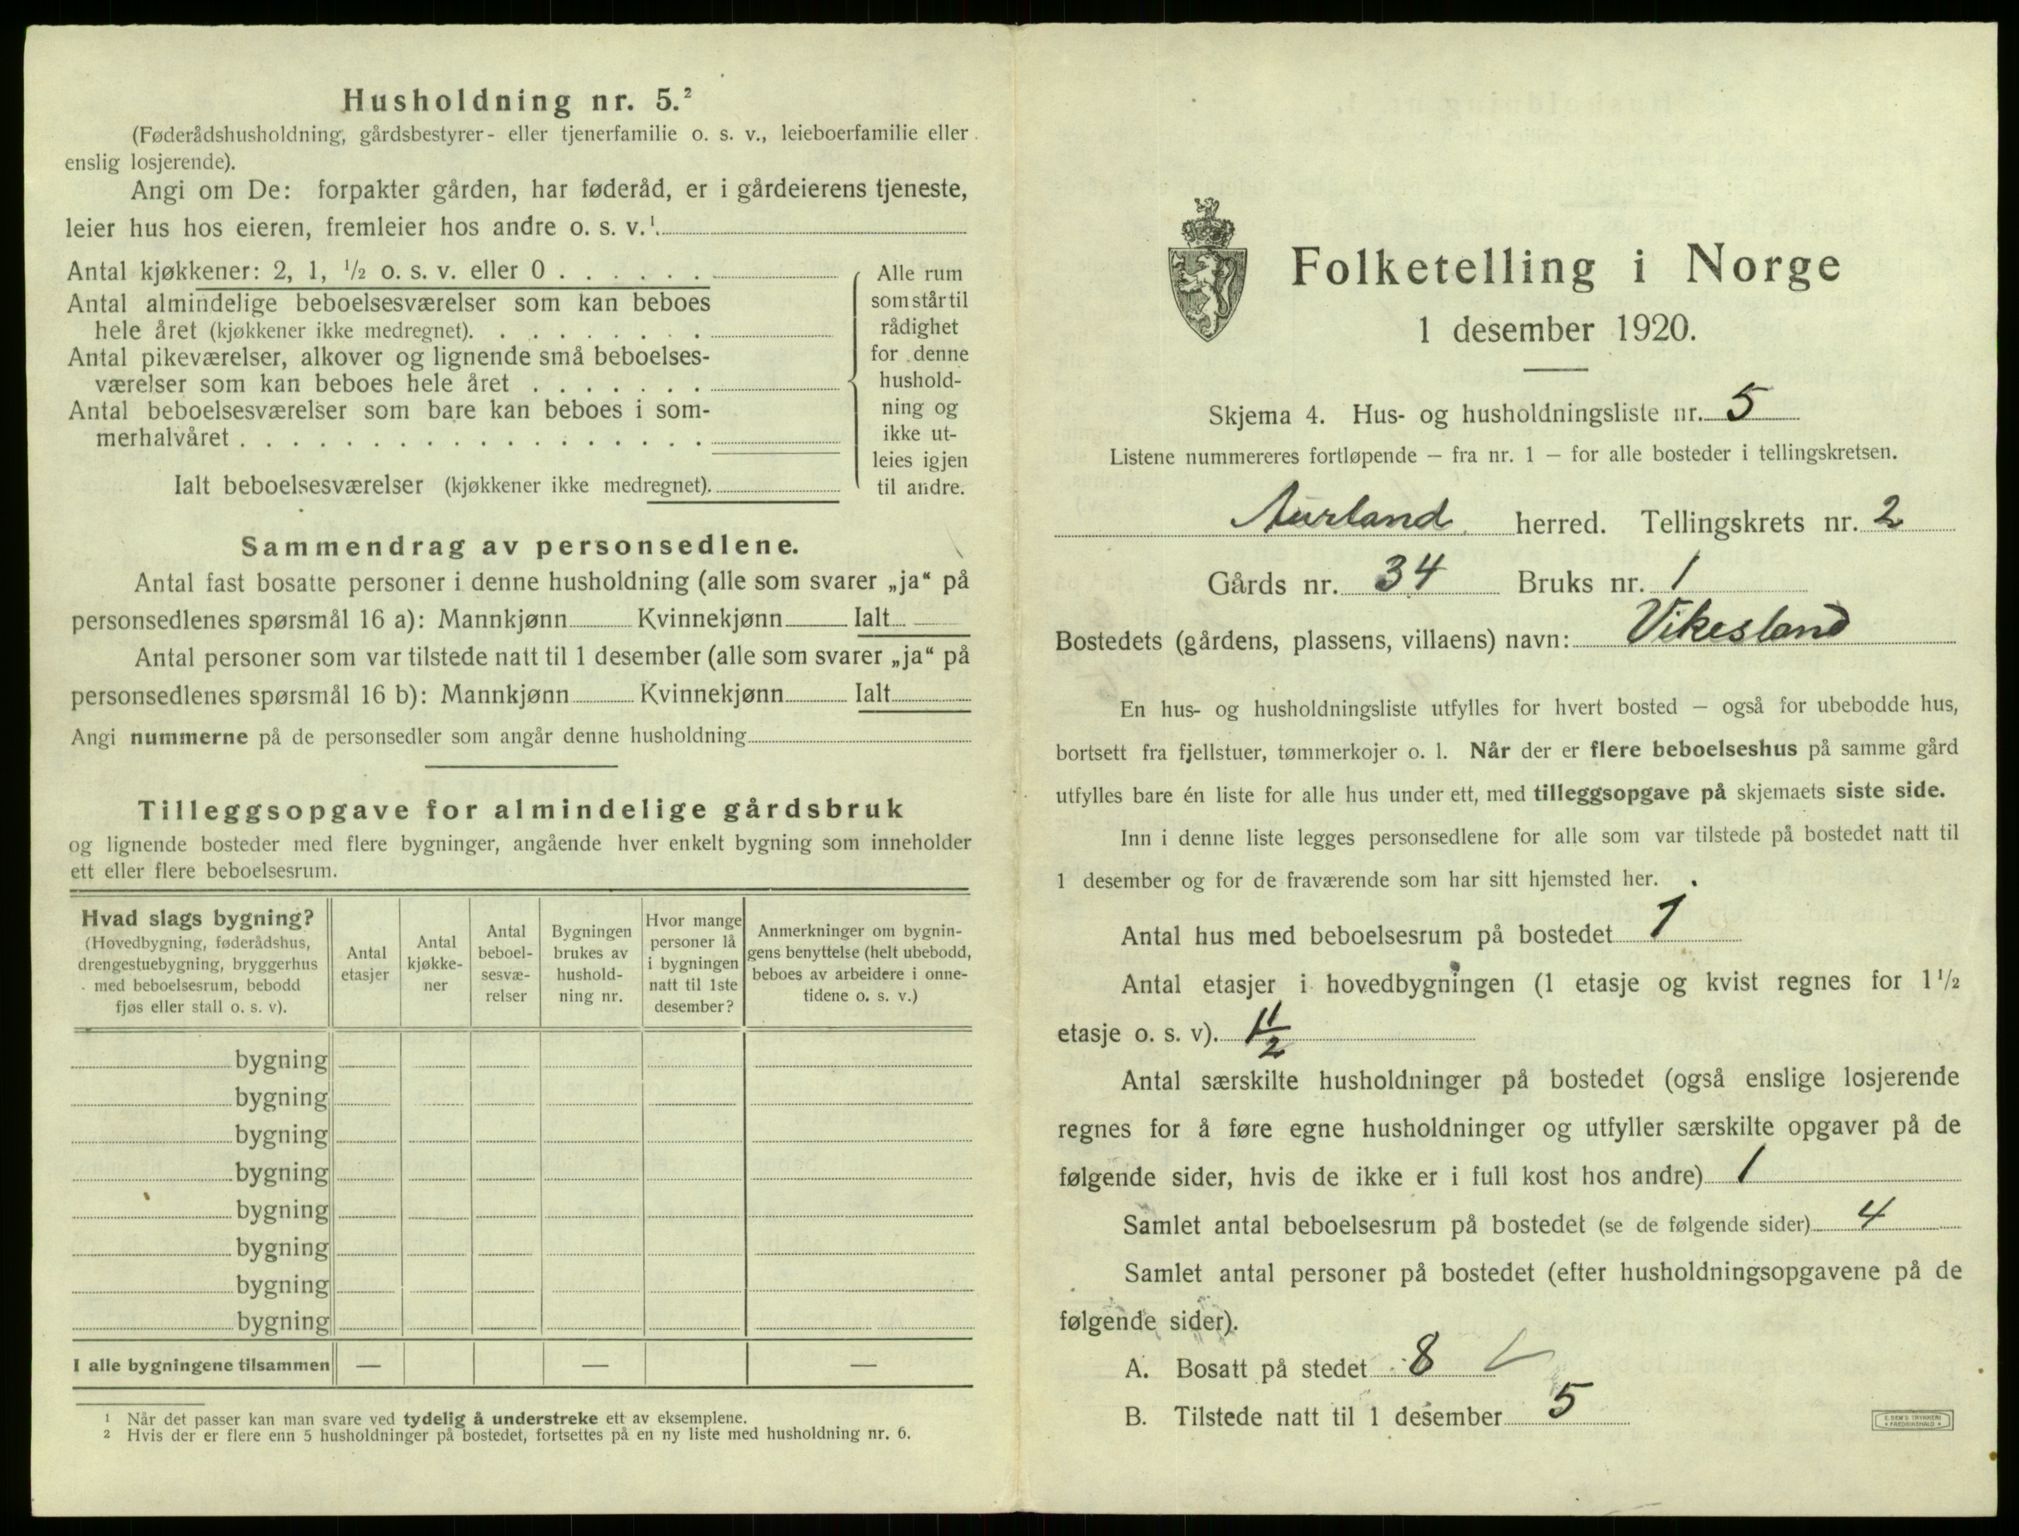 Husholdning nr. 5.²
(Føderådshusholdning, gårdsbestyrer- eller tjenerfamilie o. s. v., leieboerfamilie eller
enslig losjerende).
Angi om De: forpakter gården, har føderåd, er i gårdeierens tjeneste,
leier hus hos eieren, fremleier hos andre o. s. v.¹.
Antal kjøkkener: 2, 1, ½ o. s. v. eller 0 . . . . . .
Antal almindelige beboelsesværelser som kan beboes
hele året (kjøkkener ikke medregnet). . . . . . . .
Antal pikeværelser, alkover og lignende små beboelses-
værelser som kan beboes hele året . . . . . . .
Antal beboelsesværelser som bare kan beboes i som-
merhalvåret . . . . . . . . . . . . . . . . . .
Ialt beboelsesværelser (kjøkkener ikke medregnet).
Alle rum
som står til
rådighet
for denne
hushold-
ning og
ikke ut-
leies igjen
til andre.
Sammendrag av personsedlene.
Antal fast bosatte personer i denne husholdning (alle som svarer „ja“ på
personsedlenes spørsmål 16 a): Mannkjønn Kvinnekjønn Ialt
Antal personer som var tilstede natt til 1 desember (alle som svarer „ja“ på
personsedlenes spørsmål 16 b): Mannkjønn Kvinnekjønn Ialt
Angi nummerne på de personsedler som angår denne husholdning
Tilleggsopgave for almindelige gårdsbruk
og lignende bosteder med flere bygninger, angående hver enkelt bygning som inneholder
ett eller flere beboelsesrum.
Hvad slags bygning?
(Hovedbygning, føderådshus,
drengestuebygning, bryggerhus
med beboelsesrum, bebodd
fjøs eller stall o. s. v).
Antal
etasjer
Antal
kjøkke-
ner
Antal
beboel-
sesvæ-
relser
Bygningen
brukes av
hushold-
ning nr.
Hvor mange
personer lå
i bygningen
natt til 1ste
desember?
Anmerkninger om bygnin-
gens benyttelse (helt ubebodd,
beboes av arbeidere i onne-
tidene o. s. v.)
bygning
bygning
bygning
bygning
bygning
bygning
bygning
bygning
I alle bygningene tilsammen — — —
1 Når det passer kan man svare ved tydelig å understreke ett av eksemplene.
2 Hvis der er flere enn 5 husholdninger på bostedet, fortsettes på en ny liste med husholdning nr. 6.
Folketelling i Norge
1 desember 1920.
Skjema 4. Hus- og husholdningsliste nr. 5
Listene nummereres fortløpende – fra nr. 1 – for alle bosteder i tellingskretsen.
Aurland herred. Tellingskrets nr. 2
Gårds nr. 34 Bruks nr. 1
Bostedets (gårdens, plassens, villaens) navn: Vikesland
En hus- og husholdningsliste utfylles for hvert bosted – også for ubebodde hus,
bortsett fra fjellstuer, tømmerkojer o. l. Når der er flere beboelseshus på samme gård
utfylles bare én liste for alle hus under ett, med tilleggsopgave på skjemaets siste side.
Inn i denne liste legges personsedlene for alle som var tilstede på bostedet natt til
1 desember og for de fraværende som har sitt hjemsted her.
Antal hus med beboelsesrum på bostedet 1
Antal etasjer i hovedbygningen (1 etasje og kvist regnes for 1 ½
etasje o. s. v). 1½
Antal særskilte husholdninger på bostedet (også enslige losjerende
regnes for å føre egne husholdninger og utfyller særskilte opgaver på de
følgende sider, hvis de ikke er i full kost hos andre) 1
Samlet antal beboelsesrum på bostedet (se de følgende sider) 4
Samlet antal personer på bostedet (efter husholdningsopgavene på de
følgende sider).
A. Bosatt på stedet 8
B. Tilstede natt til 1 desember 5
E. SEM'S TRYKKERI
FREDRIKSHALD